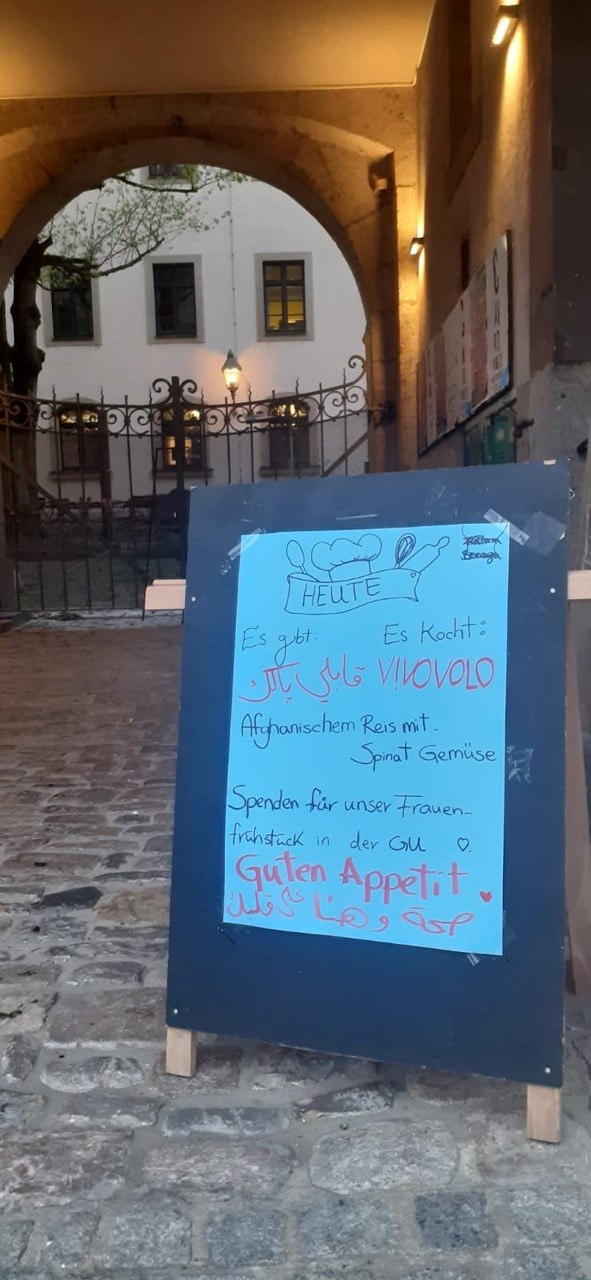 HEUTE
Es gibt: Es Kocht:
قابلي پلاو VIVOVOLO
Afghanischem Reis mit.
Spinat Gemüse
Spenden für unser Frauen-
frühstück in der GU ♡.
Guten Appetit
صحة و هنا على قلبك